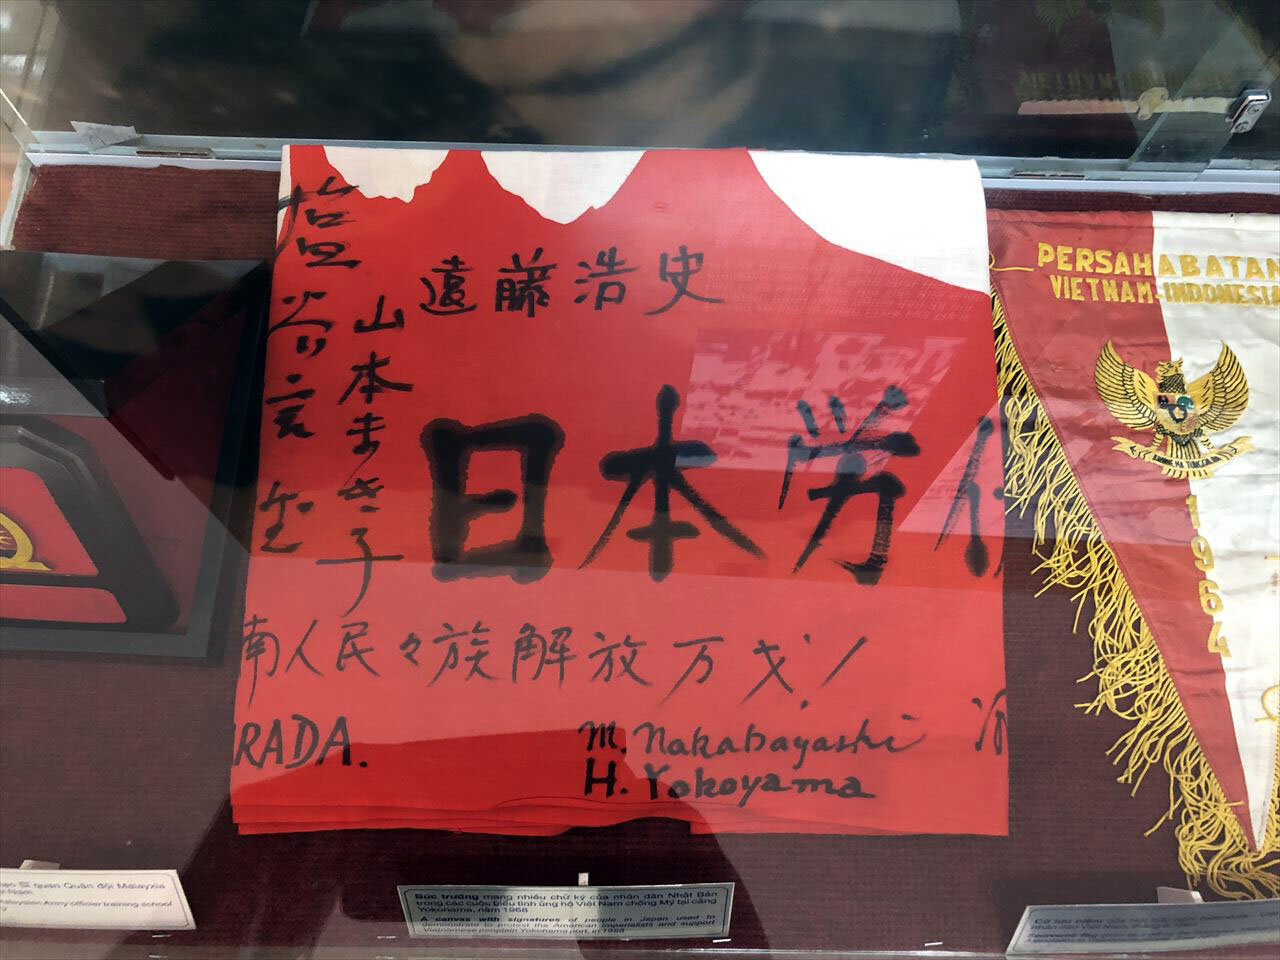 遠藤浩史
山本まき子
塩谷
日本労
南人民々族解放万才!
RADA.
M. Nakabayashi
H. Yokoyama
PERSAHABATAN
VIETNAM-INDONESIA
1964
Quân đội Malayxia
Malaysian Army officier training school
Bức trướng mang nhiều chữ ký của nhân dân Nhật Bản
trong các cuộc biểu tình ủng hộ Việt Nam chống Mỹ tại cảng
Yokohama, năm 1968
A canvas with signatures of people in Japan used to
demonstrate to protest the American imperialists and support
Vietnamese peoplein Yokohama port, in 1968